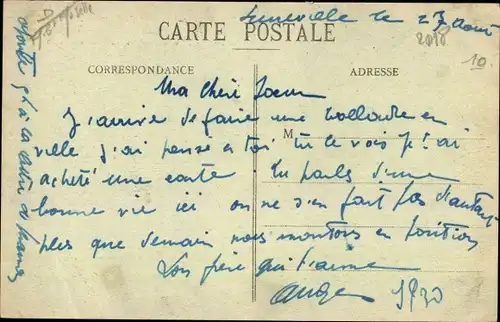 Luneville le 27 Aout
CARTE POSTALE
2018
10
CORRESPONDANCE
ADRESSE
Ma Chère Soeur
J'arrive de faire une ballade en
M
ville j'ai pensé a toi tu le vois je t'ai
acheté une carte. tu parles d'une
bonne vie ici on ne s'en fait pas d'autant
plus que demain nous montons en position
Ton frère qui t'aime
1930